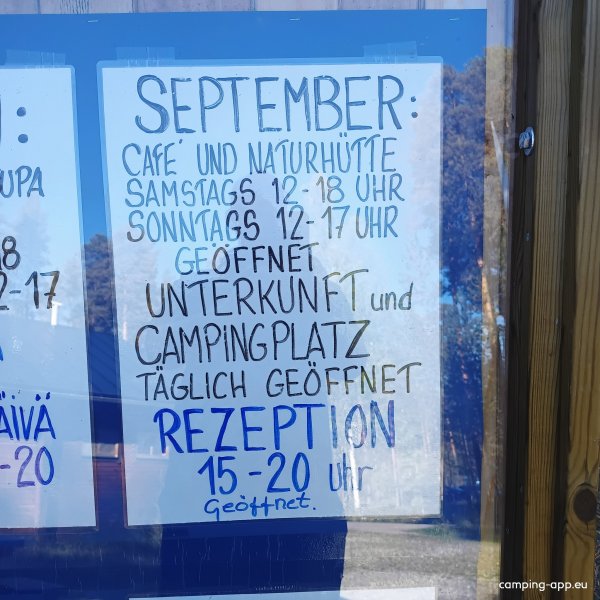 :
UPA
8
2-17
ÄIVÄ
-20
SEPTEMBER:
CAFÉ UND NATURHÜTTE
SAMSTAGS 12-18 UHR
SONNTAGS 12-17 UHR
GEÖFFNET
UNTERKUNFT und
CAMPINGPLATZ
TÄGLICH GEÖFFNET
REZEPTION
15-20 Uhr
Geöffnet.
camping-app.eu